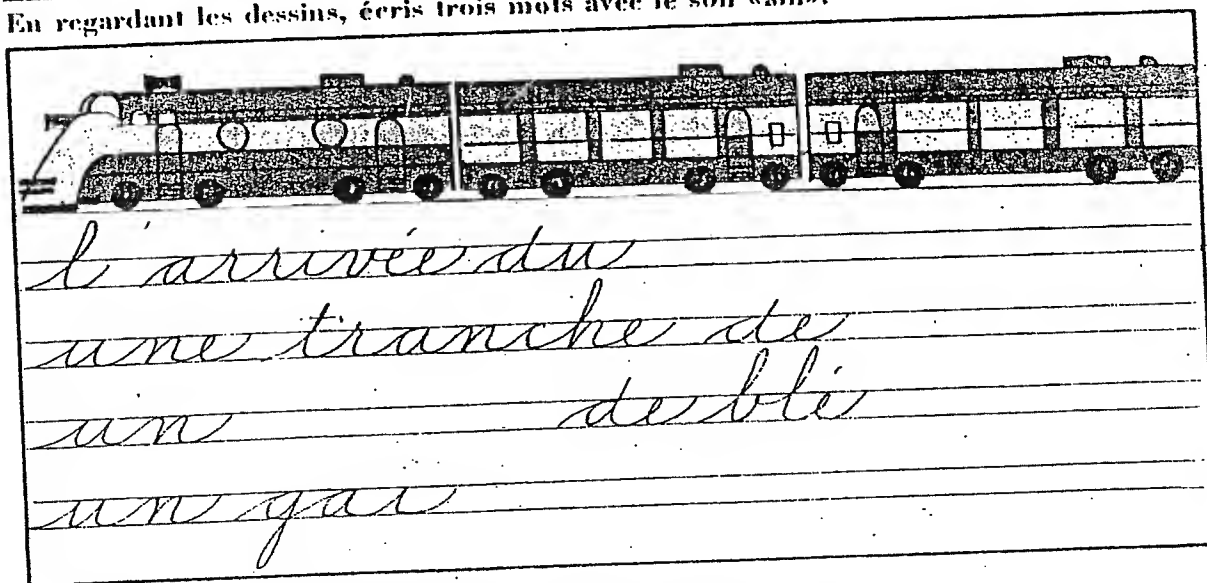 En regardant les dessins, écris trois mots avec le son «ain».
l'arrivée du
une tranche de
un de blé
un gai